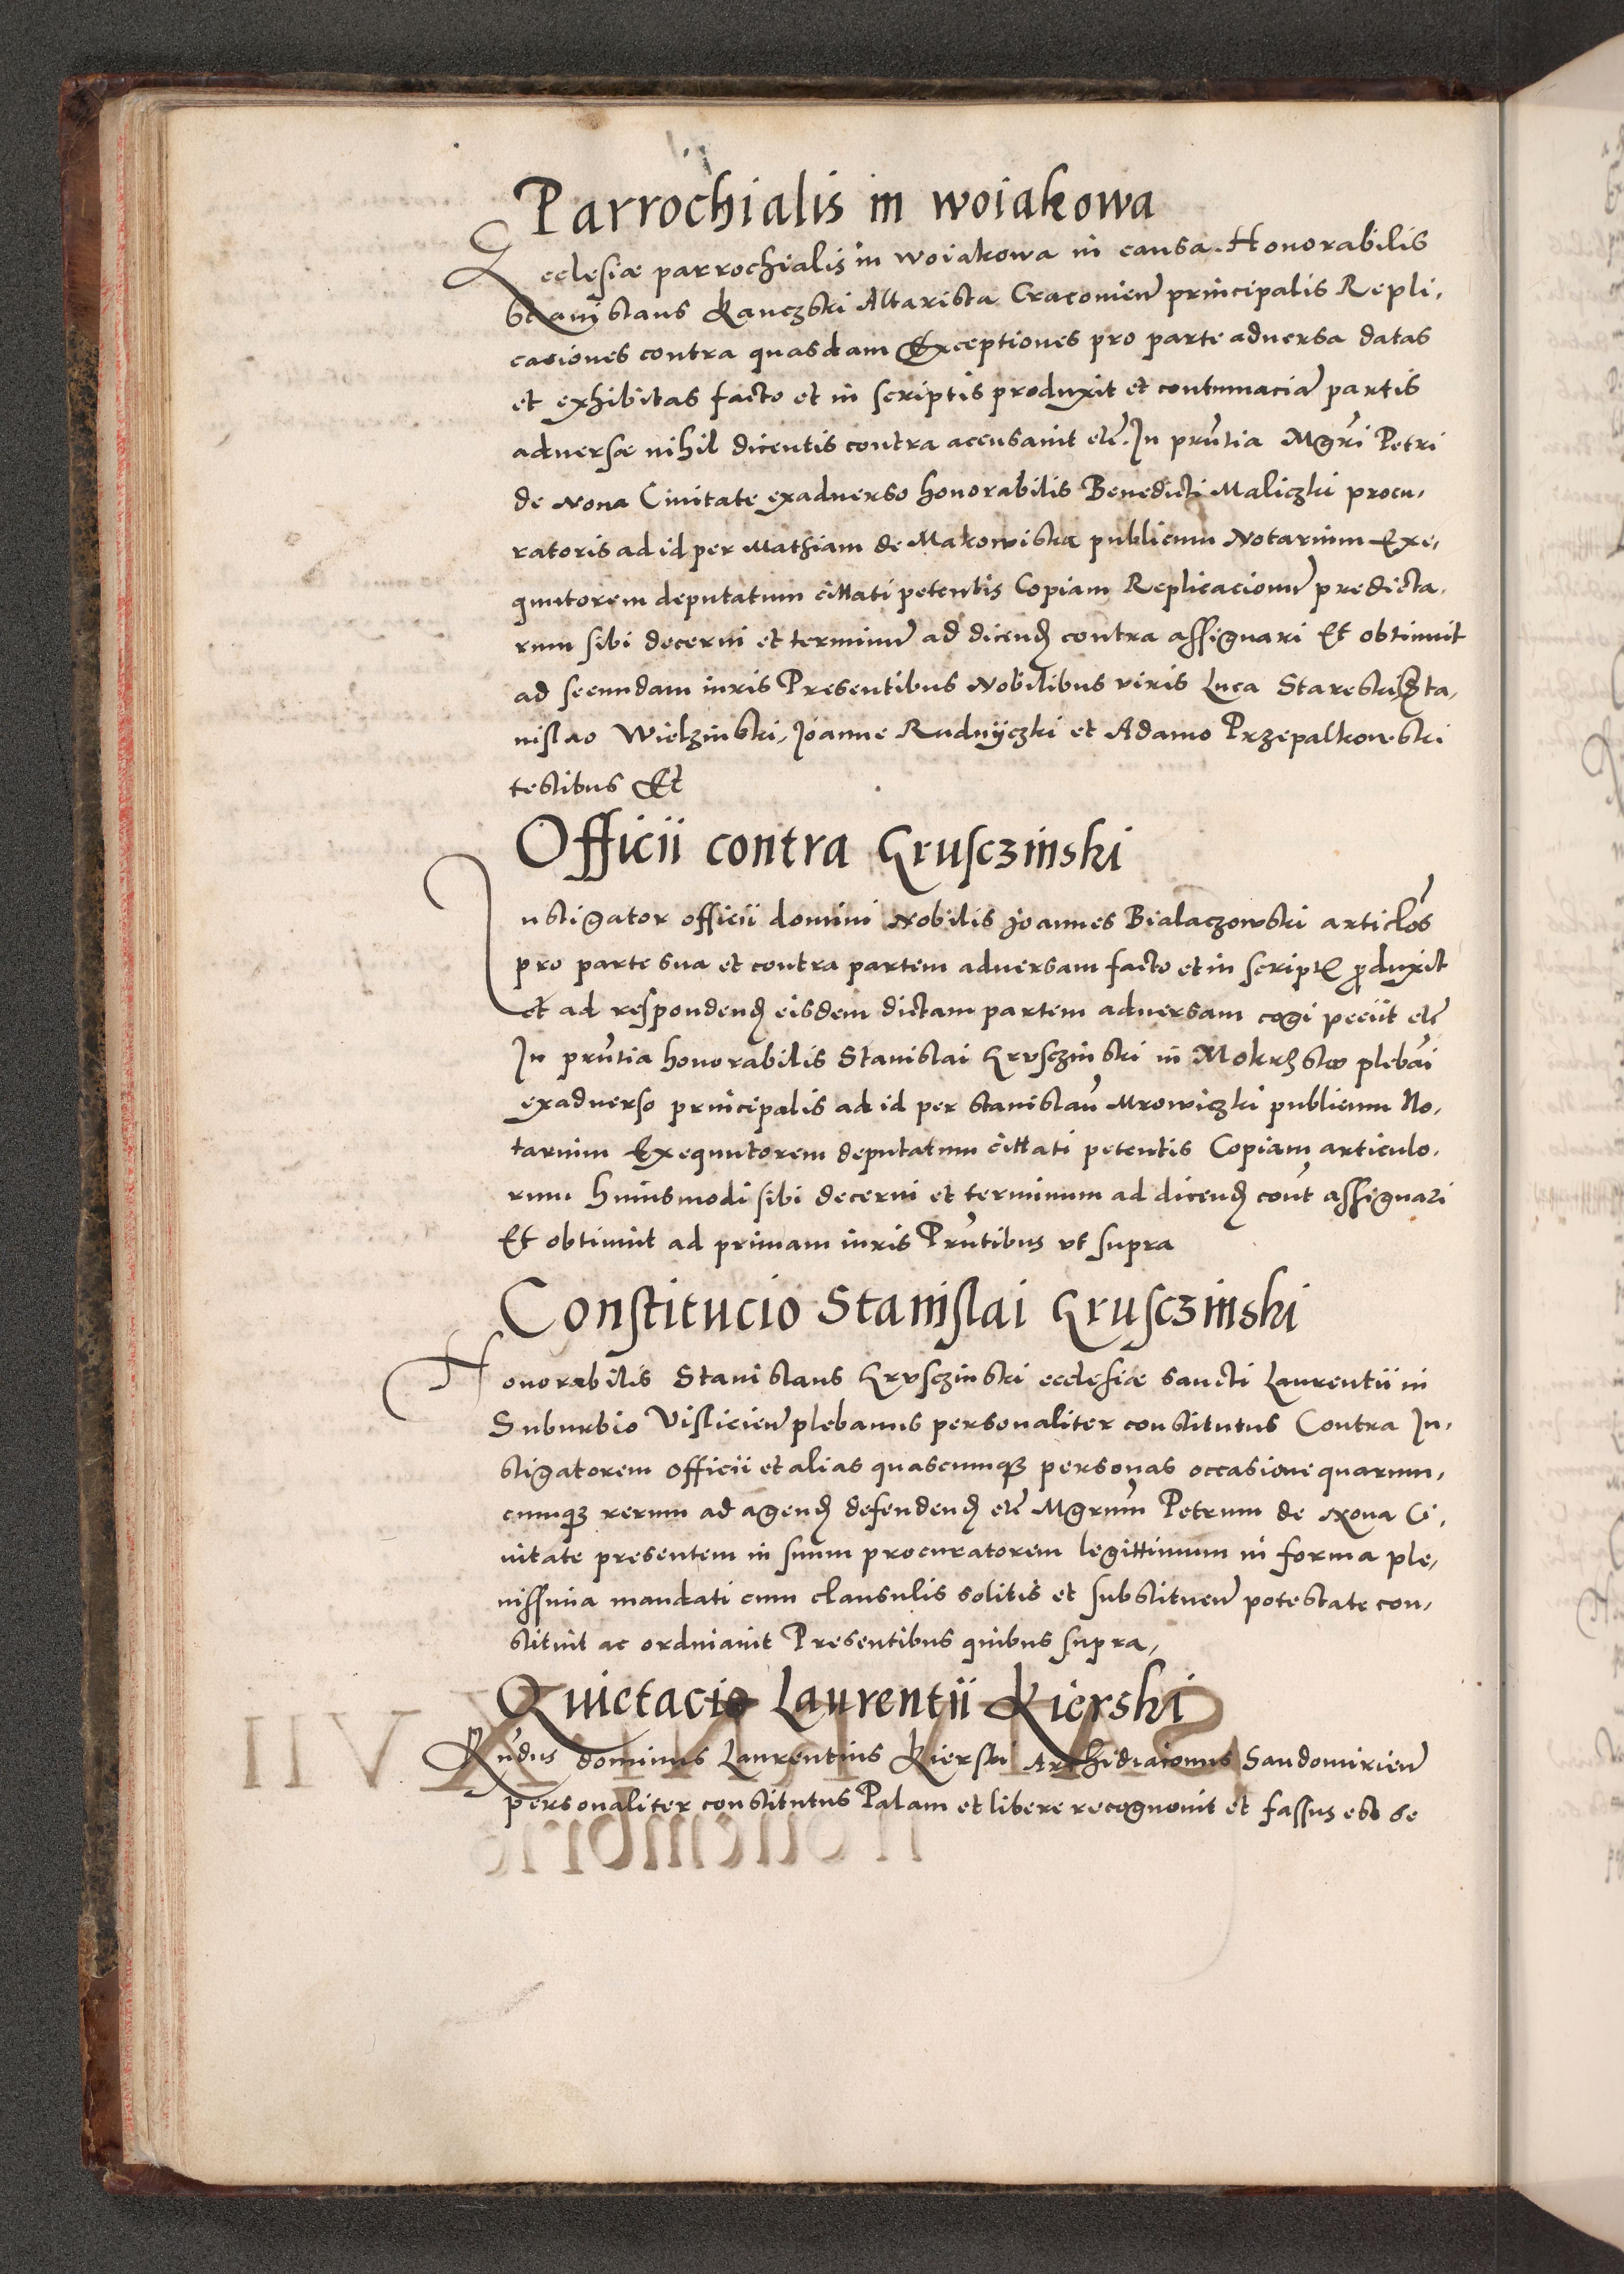 Parrochialis in woiakowa
Ecclesiæ parrochialis in woiakowa in causa. Honorabilis
Stanislaus Kanczski Altarista Cracouien̄ principalis Repli,
caciones contra quasdam Exceptiones pro parte aduersa datas
et exhibitas facto et in scriptis produxit et contumaciā partis
aduersæ nihil dicentis contra accusauit etc̄. In pn̄tia Mgr̄i Petri
de Noua Ciuitate exaduerso honorabilis Benedicti Maliczki procu,
ratoris ad id per Mathiam de Makowiska publicum Notarium Exe,
quutorem deputatum cittati petentis Copiam Replicacionū predicta,
rum sibi decerni et terminū ad dicend̄ contra assignari Et obtinuit
ad secundam iuris Presentibus Nobilibus viris Luca Stareski Sta,
nislao Wielzinski, Joanne Rudnÿczki et Adamo Przepalkowski
testibus Et
Officii contra Grusczinski
Instigator officii domini Nobilis Joannes Bialaczowski artic̄los
pro parte sua et contra partem aduersam facto et in script̄ produxit
et ad respondend̄ eisdem dictam partem aduersam cogi peciit etc̄
In pn̄tia honorabilis Stanislai Grusczinski in Mokrzsko plebāi
exaduerso principalis ad id per Stanislaū Mrowiczki publicum No,
tarium Exequutorem deputatum cittati petentis Copiam articulo,
rum huiusmodi sibi decerni et terminum ad dicend̄ cont̄ assignari
Et obtinuit ad primam iuris Prn̄tibus vt supra
Constitucio Stanislai Grusczinski
Honorabilis Stanislaus Grusczinski ecclesiæ sancti Laurentii in
Suburbio Visliciен̄ plebanus personaliter constitutus Contra In,
stigatorem officii et alias quascumqȝ personas occasione quarum,
cumqȝ rerum ad agend̄ defendend̄ etc̄ Mgrum̄ Petrum de Noua Ci,
uitate presentem in suum procuratorem legittimum in forma ple,
nissima mandati cum clausulis solitis et substituen̄ potestate con,
stituit ac ordinauit Presentibus quibus supra,
Quietacio Laurentii Kierski
Rn̄dus dominus Laurentius Kierski Archidiaconus Sandomirien̄
personaliter constitutus Palam et libere recognouit et fassus est se